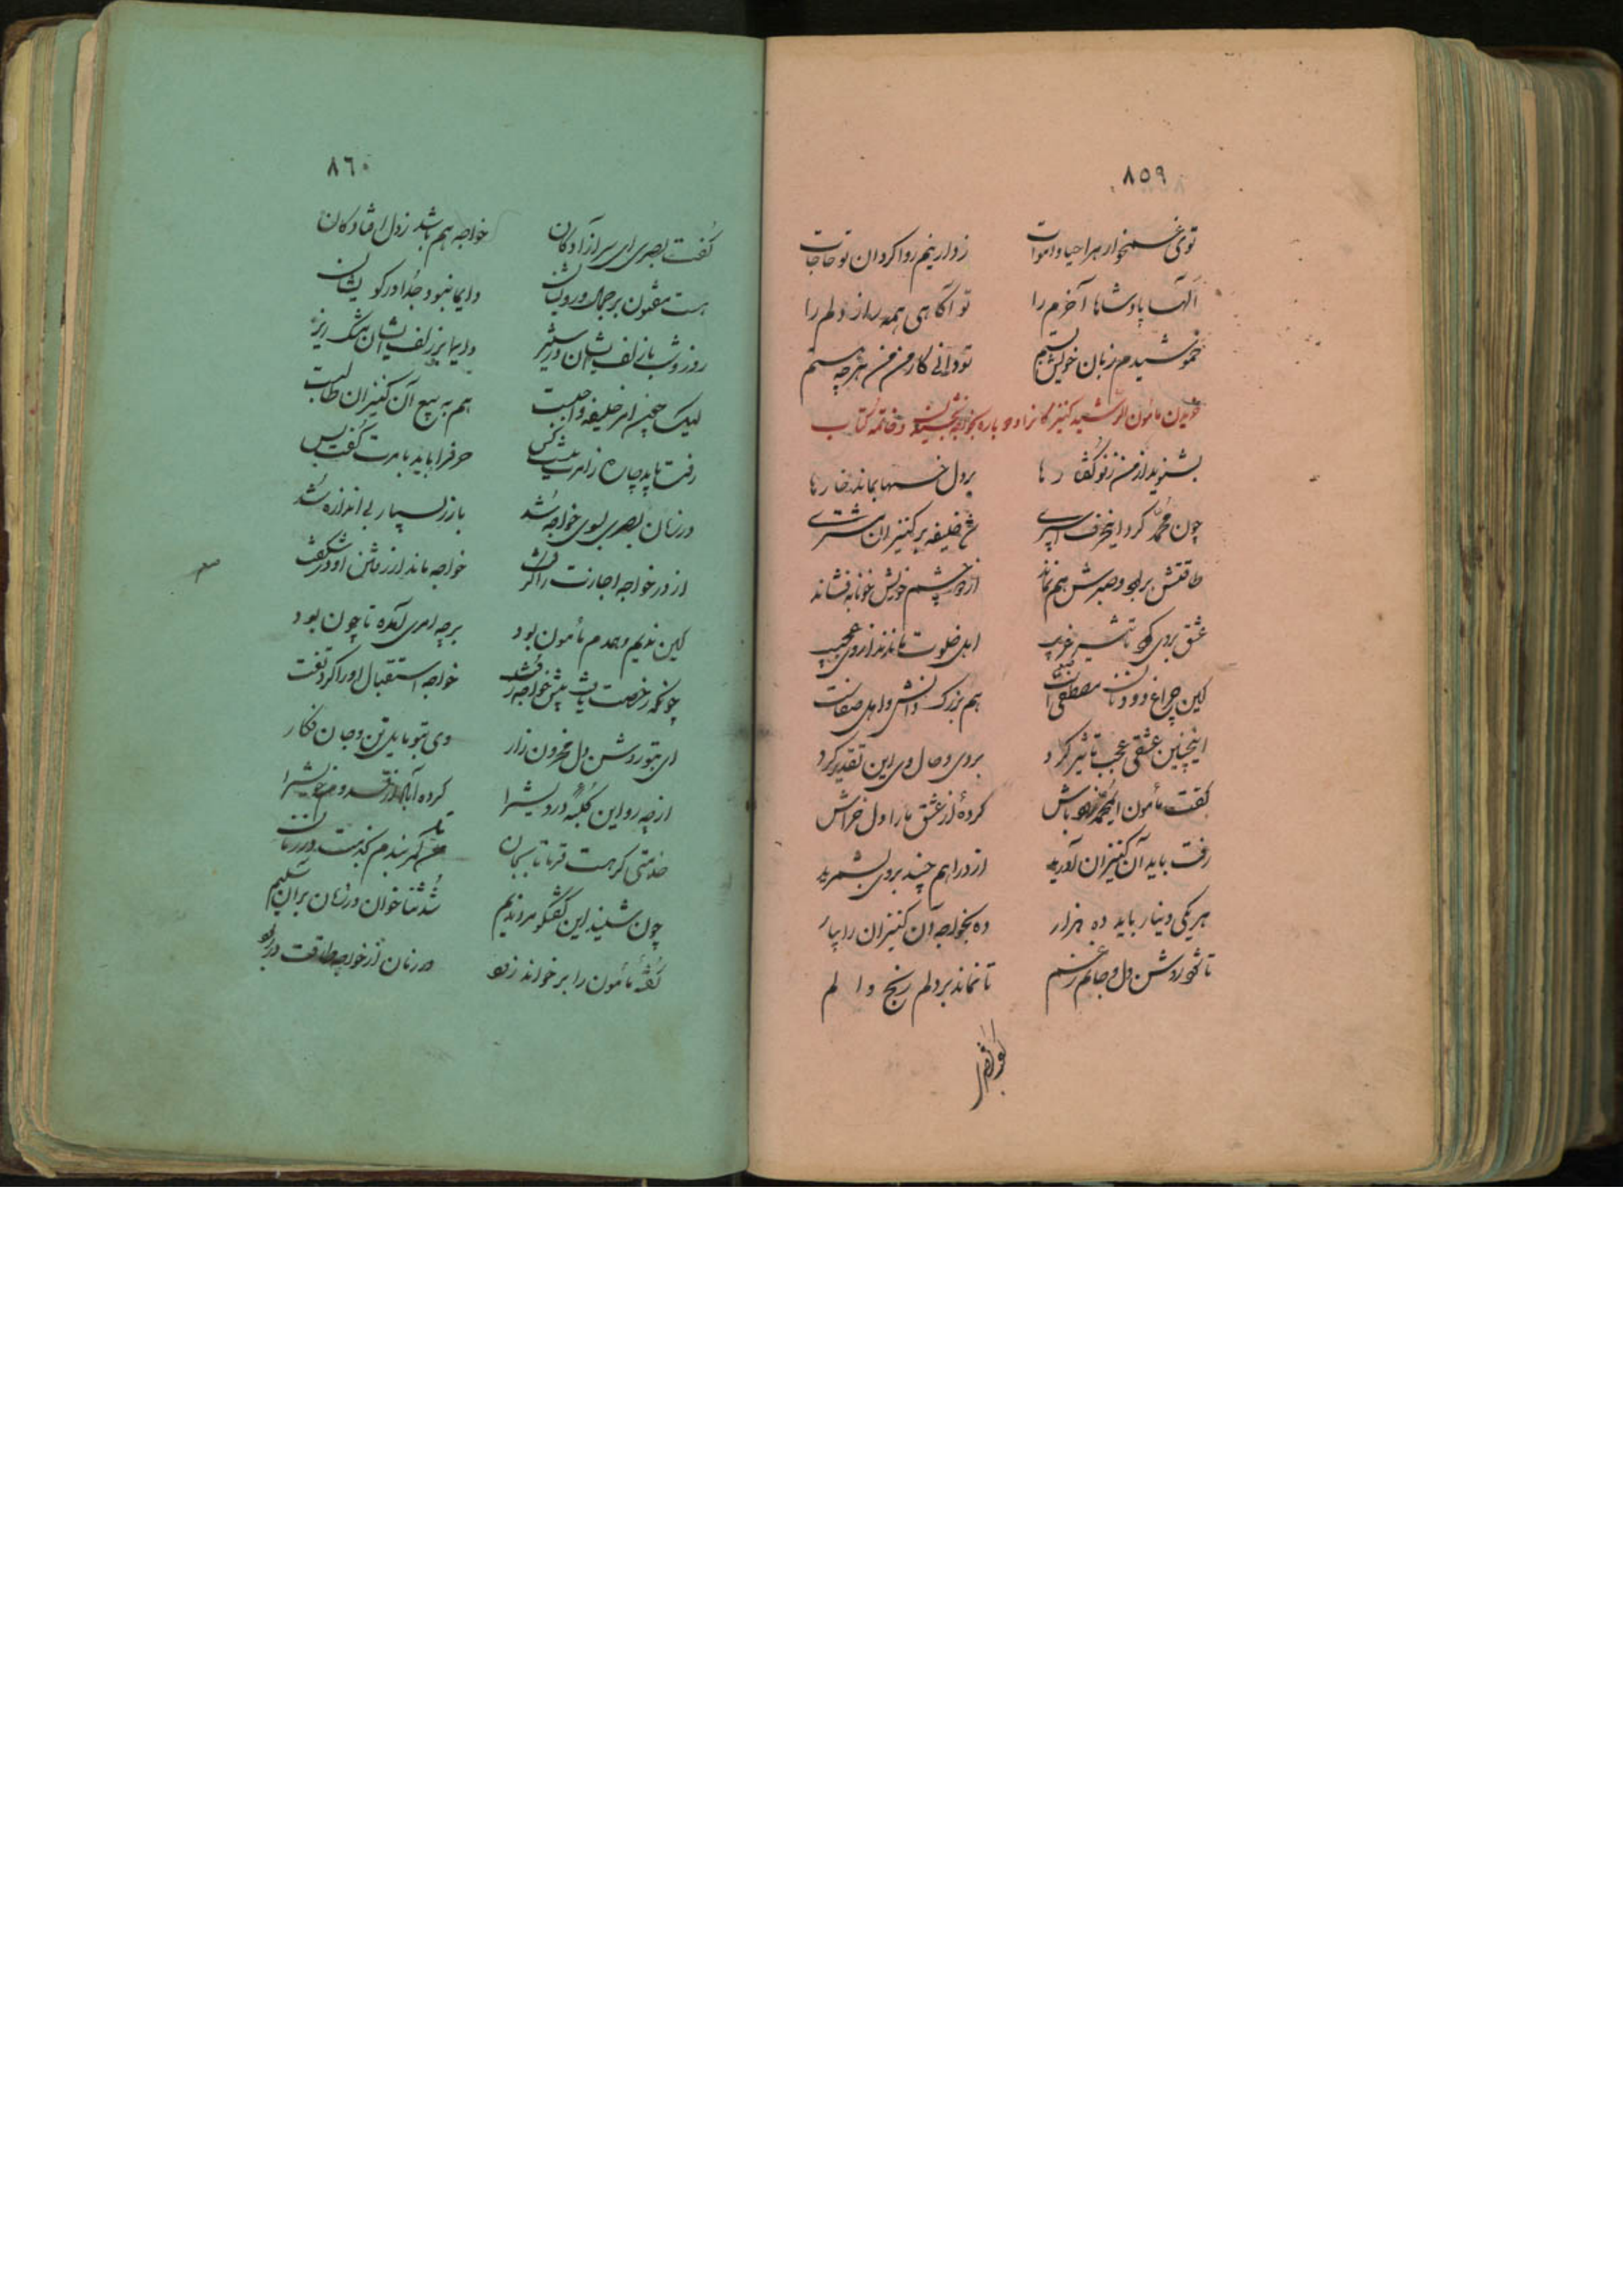 ٨٥٩
توی غمخوار هر احیا و اموات زدارینم روا گردان تو حاجات
الٓها پادشاها آخرم را تو آگاهی همه راز دلم را
خموشیدم زبان خویش بستم تو دانی کار من من هر چه هستم
مأمون الرشید کنیزکانرا دوباره بخواجه و خاتمه کتاب
بشنوید از من ز نو گفتارها بر دل خستها بماند خارها
چون محمد کرد اینحرف اسپری شد خلیفه بر کنیزان مشتری
طاقتش بربود و صبرش هم نماند از دو چشم خویش خونابه فشاند
عشق بروی کرد تأثیر غریب اهل خلوت ماندند از وی عجیب
کاین چراغ دودمان مصطفی است هم بزرگ دانش و اهل صفاست
اینچنین عشقی عجب تأثیر کرد بروی و حال وی این تقدیر کرد
گفت مأمون ایمحمد باش کردهٔ از عشق ما را دل خراش
رفت باید آن کنیزان آورید از دراهم چند بروی بشمرید
هر یکی دینار باید ده هزار ده بخواجه آن کنیزان را بیار
تا شود روشن دل و جانم ز غم تا نماند بر دلم رنج و الم
٨٦٠
گفت بصری ای سر آزادگان خواجه هم باشد ز دل افتادگان
هست مفتون بر جمال و رویشان دایما نبود جدا در کویشان
روز و شب با زلف ایشان در ستیز دایما بر زلف ایشان مشک ریز
لیک چون امر خلیفه واجبست هم به بیع آن کنیزان طالبست
رفت باید چاره زامرت نیست کس حرفرا باید بامرت گفت بس
در زمان بصری بسوی خواجه شد باز بسیار بی اندازه شد
از در خواجه اجازت را گرفت خواجه ماند از رفتن او در شگفت
کاین ندیم و همدم مأمون بود بر چه امری آمده تا چون بود
چونکه رخصت یافت پیش خواجه رفت خواجه استقبال او را کرد تفت
ای بتو روشن دل محزون زار وی بتو مایل تن و جان فکار
از چه رو این کلبهٔ درویشرا کرده آباد از قدوم خویشرا
خدمتی گر هست فرما تا بجان من کمر بندم بخدمت در زمان
چون شنید این گفتگو مرد ندیم شد ثناخوان در زمان برآن سلیم
گفتهٔ مأمون را بر خواند زود در زمان از خواجه طاقت در ربود